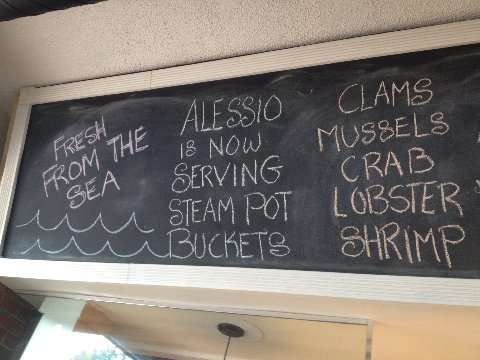 FRESH
FROM THE
SEA
ALESSIO
IS NOW
SERVING
STEAM POT
BUCKETS
CLAMS
MUSSELS
CRAB
LOBSTER
SHRIMP